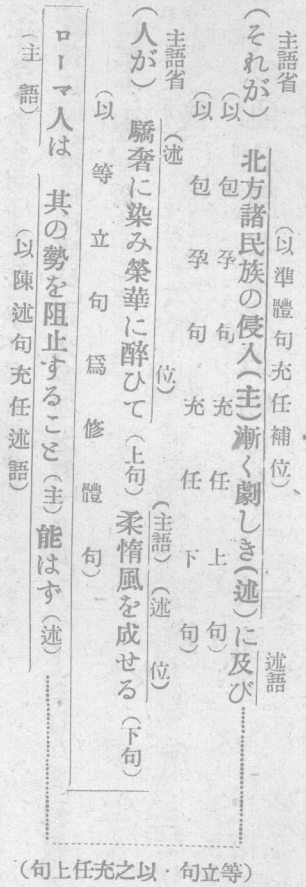 主語省
(それが)
(以準體句充任補位)、
北方諸民族の侵入(主)漸く劇しき(述)に及び
述語
(以包孕句充任上句)
(以包孕句充任下句)
主語省
(人が)
(述位)
驕奢に染み榮華に醉ひて(上句)
(主語)(述位)
柔惰風を成せる(下句)
(以等立句爲修體句)
ローマ人は
(主語)
其の勢を阻止すること(主)能はず(述)
(以陳述句充任述語)
(等立句・以之充任上句)